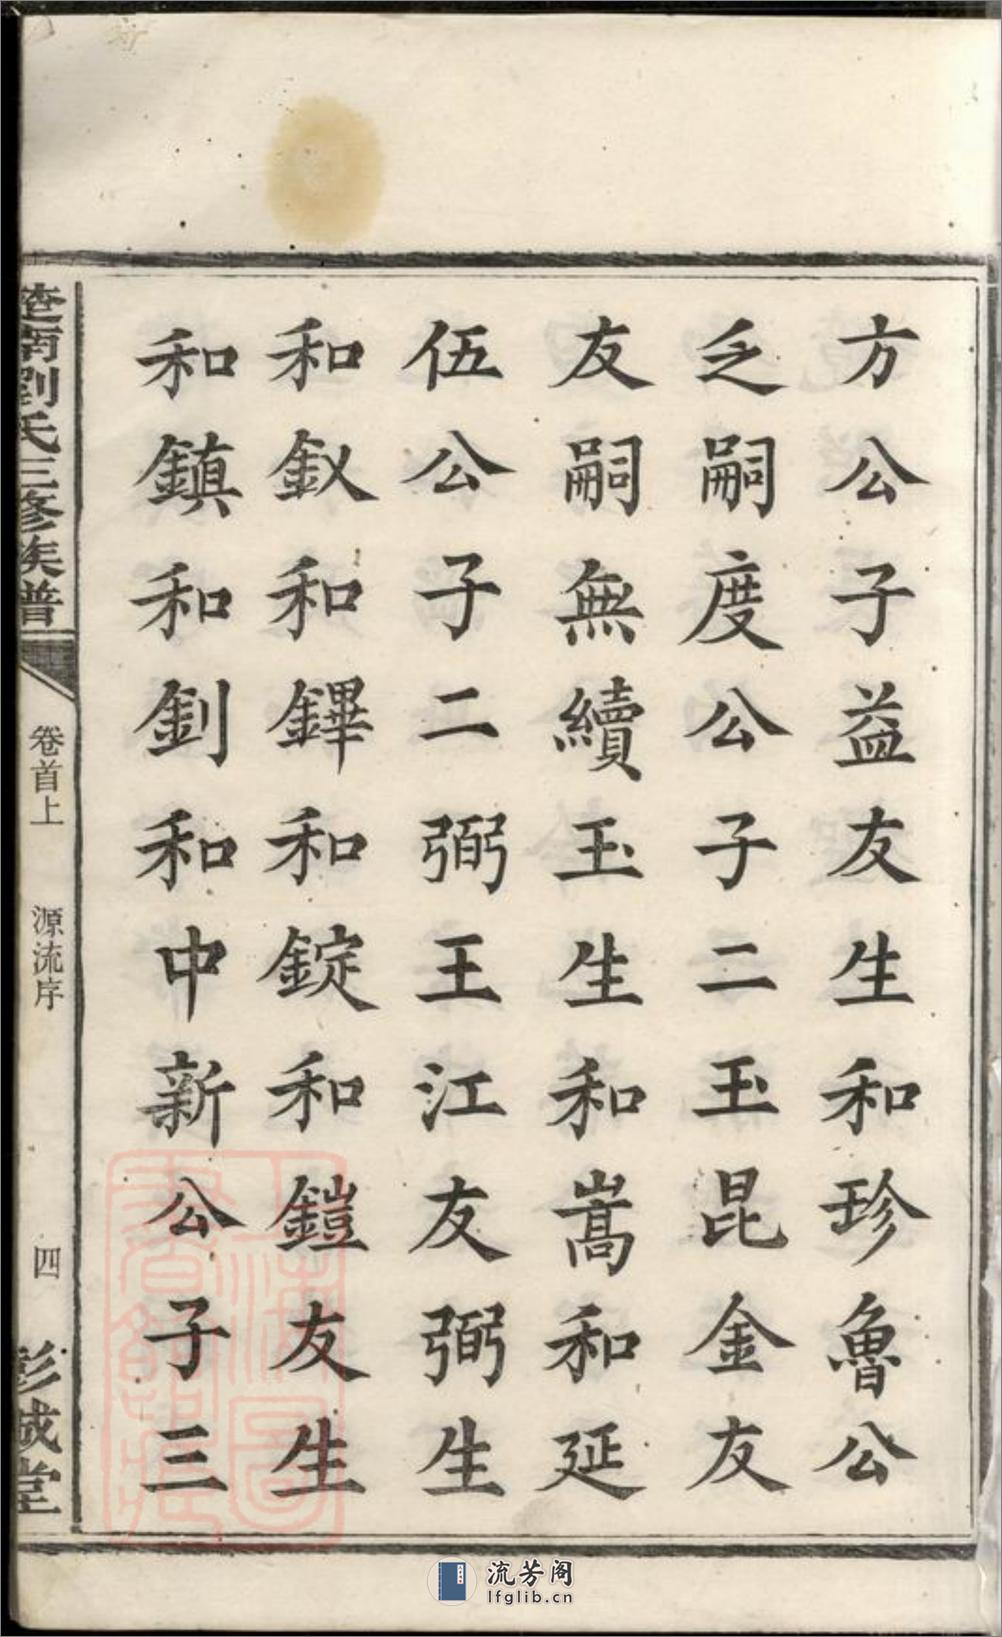 方公子益友生和珍魯公
乏嗣度公子二玉昆金友
友嗣無續玉生和嵩和延
伍公子二弼王江友弼生
和釵和鏎和錠和鎧友生
和鎮和釗和中新公子三
楚南劉氏三修族譜
卷首上
源流序
四
彭城堂
上海圖書館藏
流芳阁
lfglib.cn